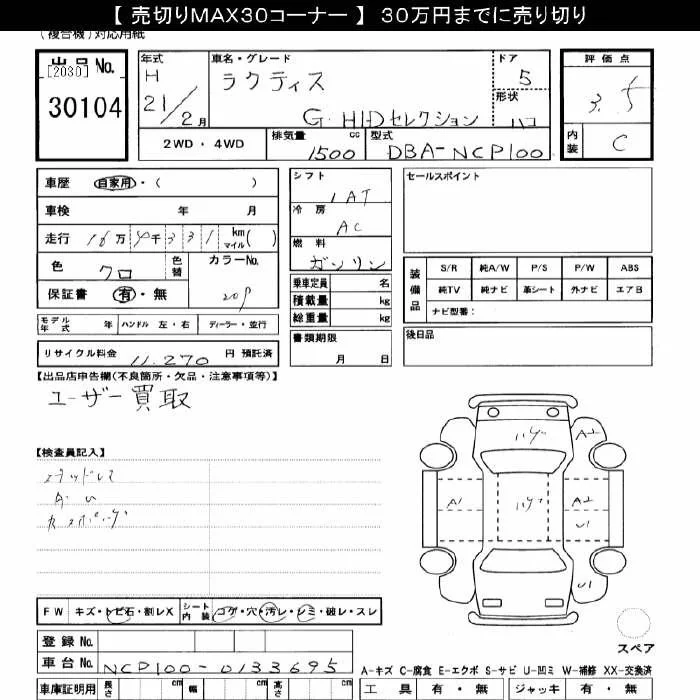 【 売切りMAX30コーナー 】 30万円までに売り切り
(複合機)対応用紙
出品No.
[2030]
30104
年式
H
21/2月
車名・グレード
ラクティス
G HIDセレクション
ドア
5
形状
ハコ
2WD・4WD
排気量
1500 cc
型式
DBA-NCP100
評価点
3.5
内装
C
車歴 自家用・( )
車検 年 月
走行 16万9千331 km マイル( )
色 クロ
色替
カラーNo.
209
保証書 有・無
モデル年式 年 ハンドル 左・右 ディーラー・並行
リサイクル料金 11,270 円 預託済
シフト
IAT
冷房
AC
燃料
ガソリン
乗車定員 名
積載量 kg
総重量 kg
書類期限
月 日
セールスポイント
装備品
S/R 純A/W P/S P/W ABS
純TV 純ナビ 革シート 外ナビ エアB
ナビ型番:
後日品
【出品店申告欄(不良箇所・欠品・注意事項等)】
ユーザー買取
【検査員記入】
FW キズ・トビ石・割レX
シート内装 コゲ・穴・汚レ・シミ・破レ・スレ
登録No.
車台No. NCP100-0133695
車庫証明用 長さ cm 幅 cm 高さ cm
ハゲ
ハゲ
A1
A2
A2
U1
U1
スペア
A-キズ C-腐食 E-エクボ S-サビ U-凹ミ W-補修 XX-交換済
工具 有・無 ジャッキ 有・無